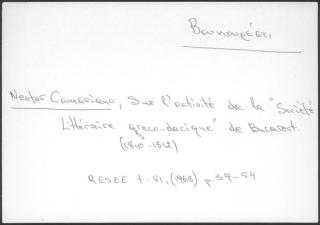 Βουκουρέστι.
Nestor Camariano, Sur l'activité de la "Société
littéraire greco-dacique" de Bucarest.
(1810-1812)
RESEE t. VI, (1968) p. 39-54